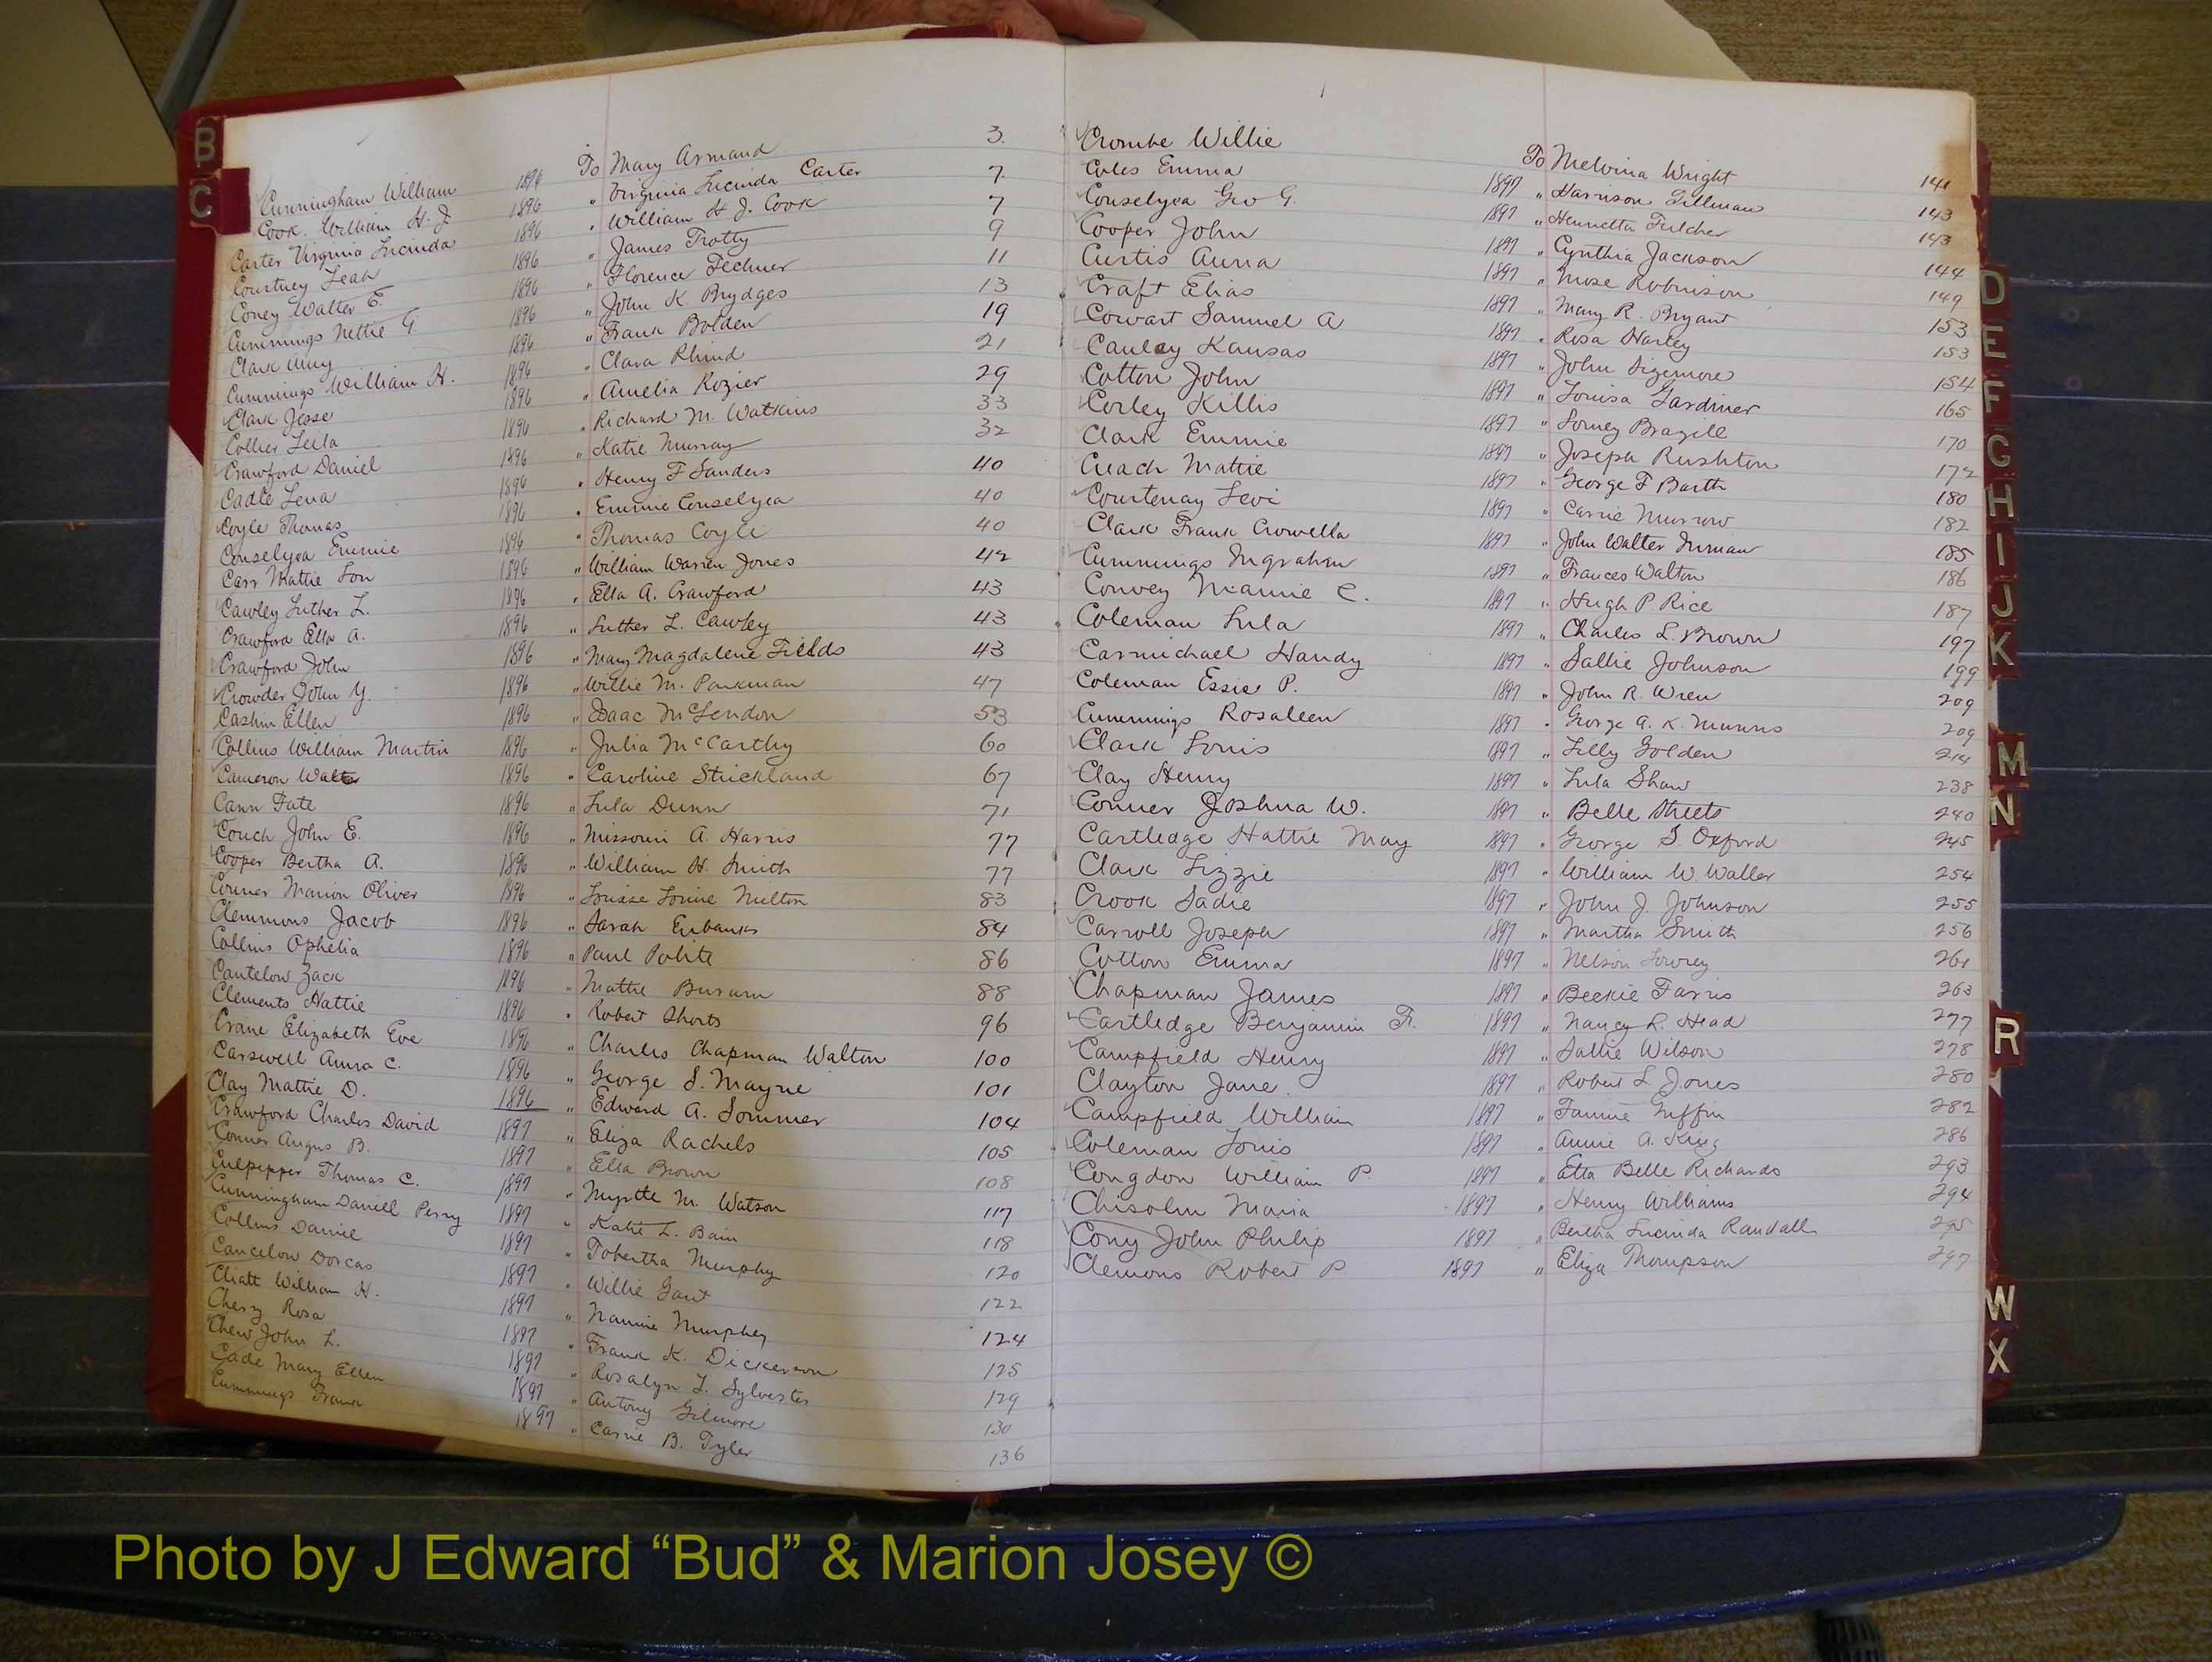 B
C
Cunningham William 1896 To Mary Armand 3
Cook William H. J. 1896 " Virginia Lucinda Carter 7
Carter Virginia Lucinda 1896 " William H J. Cook 7
Courtney Leah 1896 " James Trotty 9
Coney Walter E. 1896 " Florence Fechner 11
Cummings Nettie G 1896 " John K. Brydges 13
Clark Amy 1896 " Frank Bolden 19
Cummings William H. 1896 " Clara Rhind 21
Clark Jesse 1896 " Amelia Rozier 29
Collier Lula 1896 " Richard M. Watkins 33
Crawford Daniel 1896 " Katie Murray 32
Cadle Lena 1896 " Henry F Sanders 40
Coyle Thomas 1896 " Emmie Conselyea 40
Conselyea Emmie 1896 " Thomas Coyle 40
Carr Mattie Lou 1896 " William Warren Jones 42
Cawley Luther L. 1896 " Ella A. Crawford 43
Crawford Ella A. 1896 " Luther L. Cawley 43
Crawford John 1896 " Mary Magdalene Fields 43
Crowder John Y. 1896 " Willie M. Parkman 47
Cashin Ellen 1896 " Isaac McLendon 53
Collins William Martin 1896 " Julia McCarthy 60
Cameron Walter 1896 " Caroline Strickland 67
Cann Fate 1896 " Lula Dunn 71
Couch John E. 1896 " Missouri A. Harris 77
Cooper Bertha A. 1896 " William H. Smith 77
Conner Marion Oliver 1896 " Louise Milton 83
Clemmons Jacob 1896 " Sarah Eubanks 84
Collins Ophelia 1896 " Paul Polite 86
Cantelow Zack 1896 " Mattie 88
Clements Hattie 1896 " Robert Shorts 96
Crane Elizabeth Eve 1896 " Charles Chapman Walton 100
Carswell Anna C. 1896 " George S. Mayne 101
Clay Mattie D. 1896 " Edward A. Sommer 104
Crawford Charles David 1897 " Eliza Rachels 105
Conner Angus B. 1897 " Ella Brown 108
Culpepper Thomas C. 1897 " Myrtle M. Watson 117
Cunningham Daniell Perry 1897 " Katie L. Bain 118
Collins Daniel 1897 " Tobertha Murphy 120
Cancelow Dorcas 1897 " Willie Gant 122
Cliatt William H. 1897 " Nannie Murphey 124
Chery Rosa 1897 " Frank K. Dickerson 125
Chew John L. 1897 " Rosalyn L. Sylvester 129
Cade Mary Ellen 1897 " Antony Gilmore 130
Cummings Frank 1897 " Carrie B. Tyler 136
Crombe Willie 1897 To Melvina Wright 141
Coles Emma 1897 " Harrison Tillman 143
Conselyea Geo G. 1897 " Henrietta Fulcher 143
Cooper John 1897 " Cynthia Jackson 144
Curtis Anna 1897 " Mose Robinson 149
Craft Elias 1897 " Mary R. Bryant 153
Cowart Samuel A 1897 " Rosa Harley 153
Cauley Kansas 1897 " John Sizemore 154
Cotton John 1897 " Louisa Gardiner 165
Corley Killis 1897 " Brazill 170
Clark Emmie 1897 " Joseph Rushton 172
Cuach Mattie 1897 " George F Barth 180
Courtenay Levi 1897 " Carrie Murrow 182
Clark Frank Crowella 1897 " John Walter Inman 185
Cummings Ingraham 1897 " Frances Walton 186
Convey Mamie C. 1897 " Hugh P. Rice 187
Coleman Lula 1897 " Charles L. Brown 197
Carmichael Handy 1897 " Sallie Johnson 199
Coleman Essie P. 1897 " John R. Wren 209
Cummings Rosaleen 1897 " George A. K. Munns 209
Clark Louis 1897 " Lilly Golden 214
Clay Henry 1897 " Lula Shaw 238
Conner Joshua W. 1897 " Belle Streets 240
Cartledge Hattie May 1897 " George S. Oxford 245
Clark Lizzie 1897 " William W. Waller 254
Crook Sadie 1897 " John J. Johnson 255
Carroll Joseph 1897 " Martha Smith 256
Cotton Emma 1897 " Nelson Lowrey 261
Chapman James 1897 " Beckie Farris 263
Cartledge Benjamin F. 1897 " Nancy L. Head 277
Campfield Henry 1897 " Sallie Wilson 278
Clayton Jane 1897 " Robert L. Jones 280
Campfield William 1897 " Fannie Griffin 282
Coleman Louis 1897 " Annie A. King 286
Congdon William P. 1897 " Etta Belle Richards 293
Chisolm Maria 1897 " Henry Williams 294
Cony John Philip 1897 " Bertha Lucinda Randall 295
Clemons Robert P. 1897 " Eliza Thompson 297
D
E
F
G
H
I
J
K
M
N
R
W
X
Photo by J Edward “Bud” & Marion Josey ©